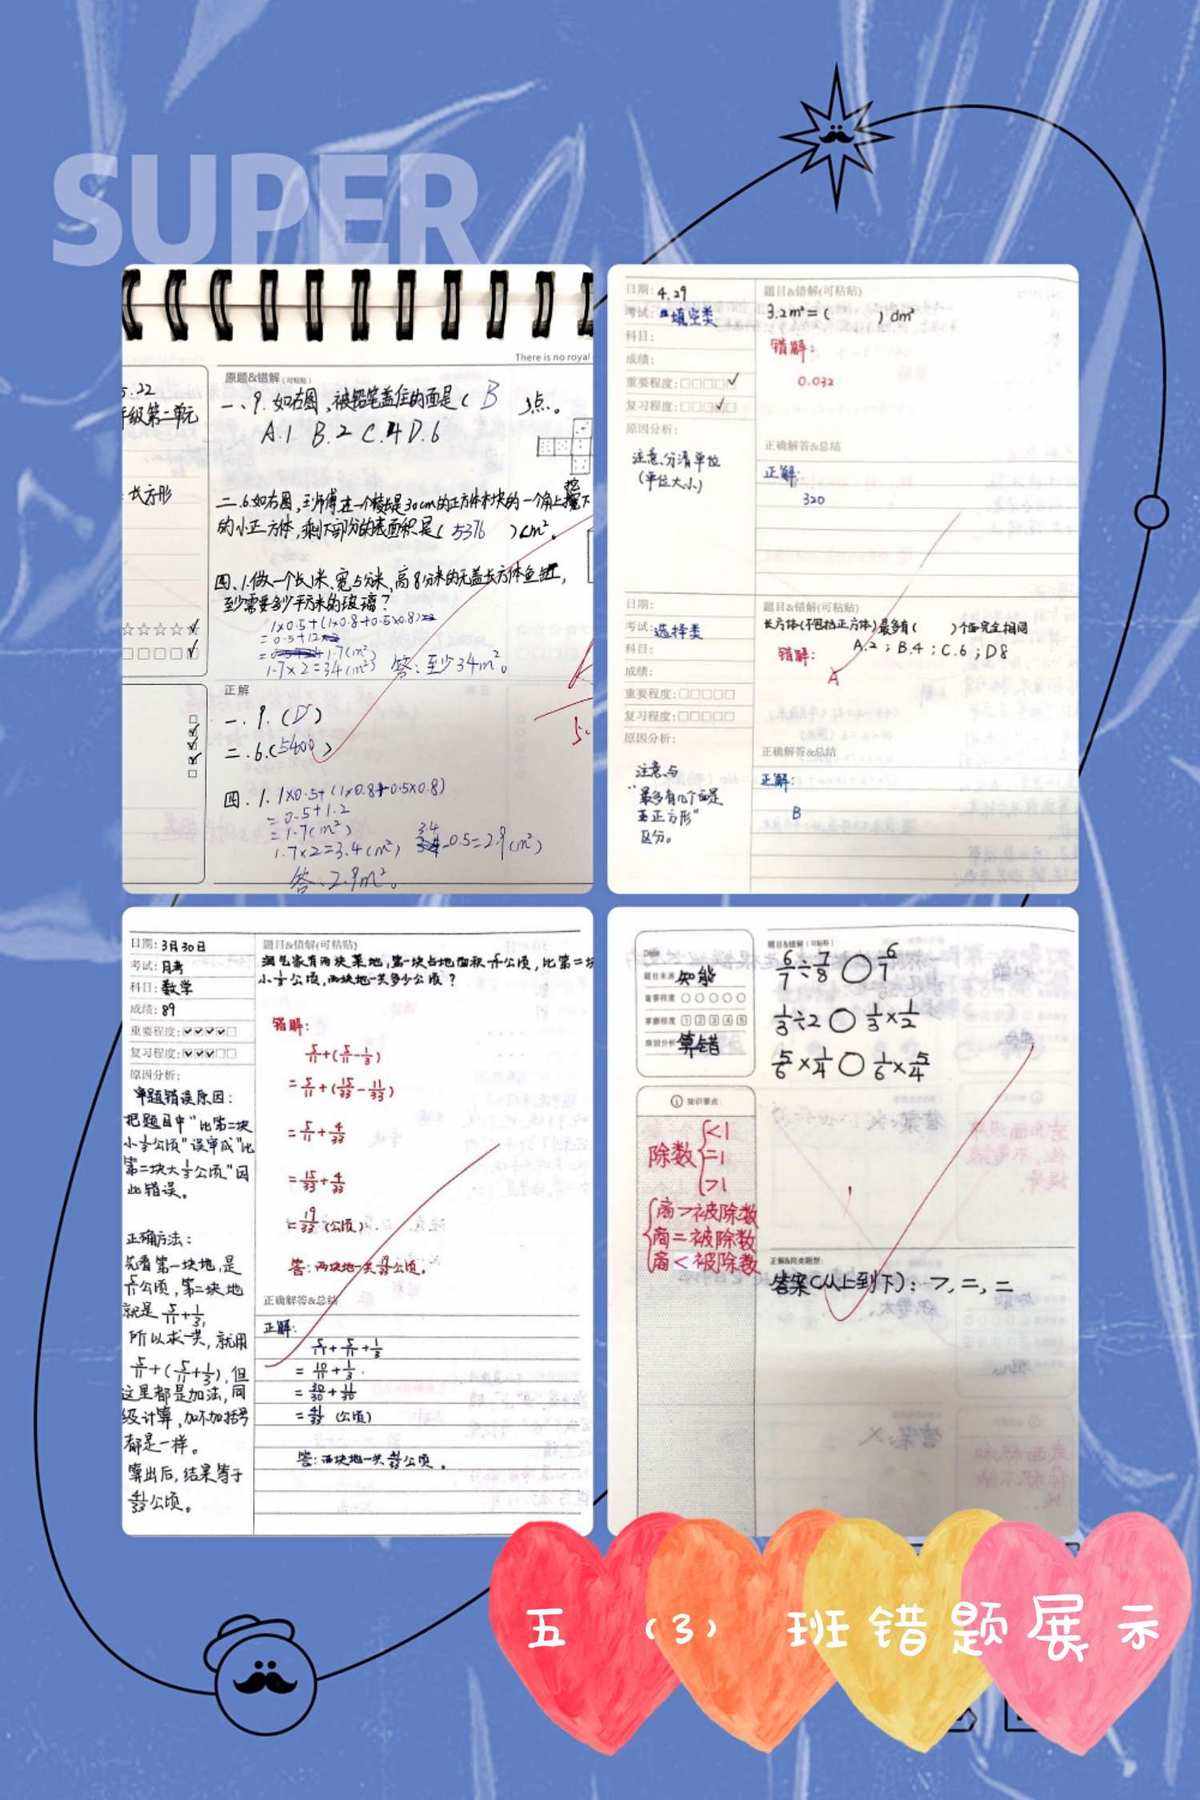 SUPER
There is no royal
5.22
年级第二单元
长方形
原题&错解(可粘贴)
一、9. 如右图,被铅笔盖住的面是( B )点。
A.1 B.2 C.4 D.6
的小正方体,剩下部分的表面积是( 5376 )cm²。
四、1.做一个长1米、宽5分米、高8分米的无盖长方体鱼缸,
至少需要多少平方米的玻璃?
1×0.5+(1×0.8+0.5×0.8)
1.7×2=34(m²) 答:至少34m²。
正解
一.9.(D)
二.6.(5400)
四.1. 1×0.5+(1×0.8+0.5×0.8)
=0.5+1.2
=1.7(m²)
1.7×2=3.4(m²) 3.4-0.5=2.9(m²)
答:2.9m²。
日期: 4.29
考试: 填空类
科目:
成绩:
重要程度:
复习程度:
原因分析:
注意分清单位
(单位大小)
题目&错解(可粘贴)
3.2m²=( )dm²
错解:
0.032
正确解答&总结
正解:
320
日期:
考试: 选择类
科目:
成绩:
重要程度:
复习程度:
原因分析:
注意与
"最多有几个面是
正方形"
区分。
题目&错解(可粘贴)
长方体(不包括正方体)最多有( )个面完全相同
A.2;B.4;C.6;D8
错解:
A
正确解答&总结
正解:
B
日期: 3月30日
考试: 月考
科目: 数学
成绩: 89
重要程度:
复习程度:
原因分析:
审题错误原因:
把题目中"比第二块
小1/3公顷"误审成"比
第二块大1/3公顷"因
此错误。
正确方法:
先看第一块地,是
5/11公顷,第二块地
就是5/11+1/3,
所以求一共,就用
5/11+(5/11+1/3),但
这里都是加法,同
级计算,加不加括号
都是一样。
算出后,结果等于
公顷。
题目&错解(可粘贴)
淘气家有两块菜地,第一块占地面积5/11公顷,比第二块
小1/3公顷,两块地一共多少公顷?
错解:
5/11+(5/11-1/3)
=5/11+(15/33-11/33)
=5/11+4/33
=15/33+4/33
=19/33(公顷)
答:两块地一共19/33公顷。
正确解答&总结
正解:
5/11+5/11+1/3
=10/11+1/3
(公顷)
答:两块地一共公顷。
题目来源 知能
重要程度
掌握程度 1 2 3 4 5
原因分析 算错
知识要点
除数 <1
=1
>1
商>被除数
商=被除数
商<被除数
题目&错解(可粘贴)
6/7÷7/8○6/7
1/3÷2○1/3×1/2
5/6×1/4○1/6×5/4
答案(从上到下):>,=,=
五(3)班错题展示